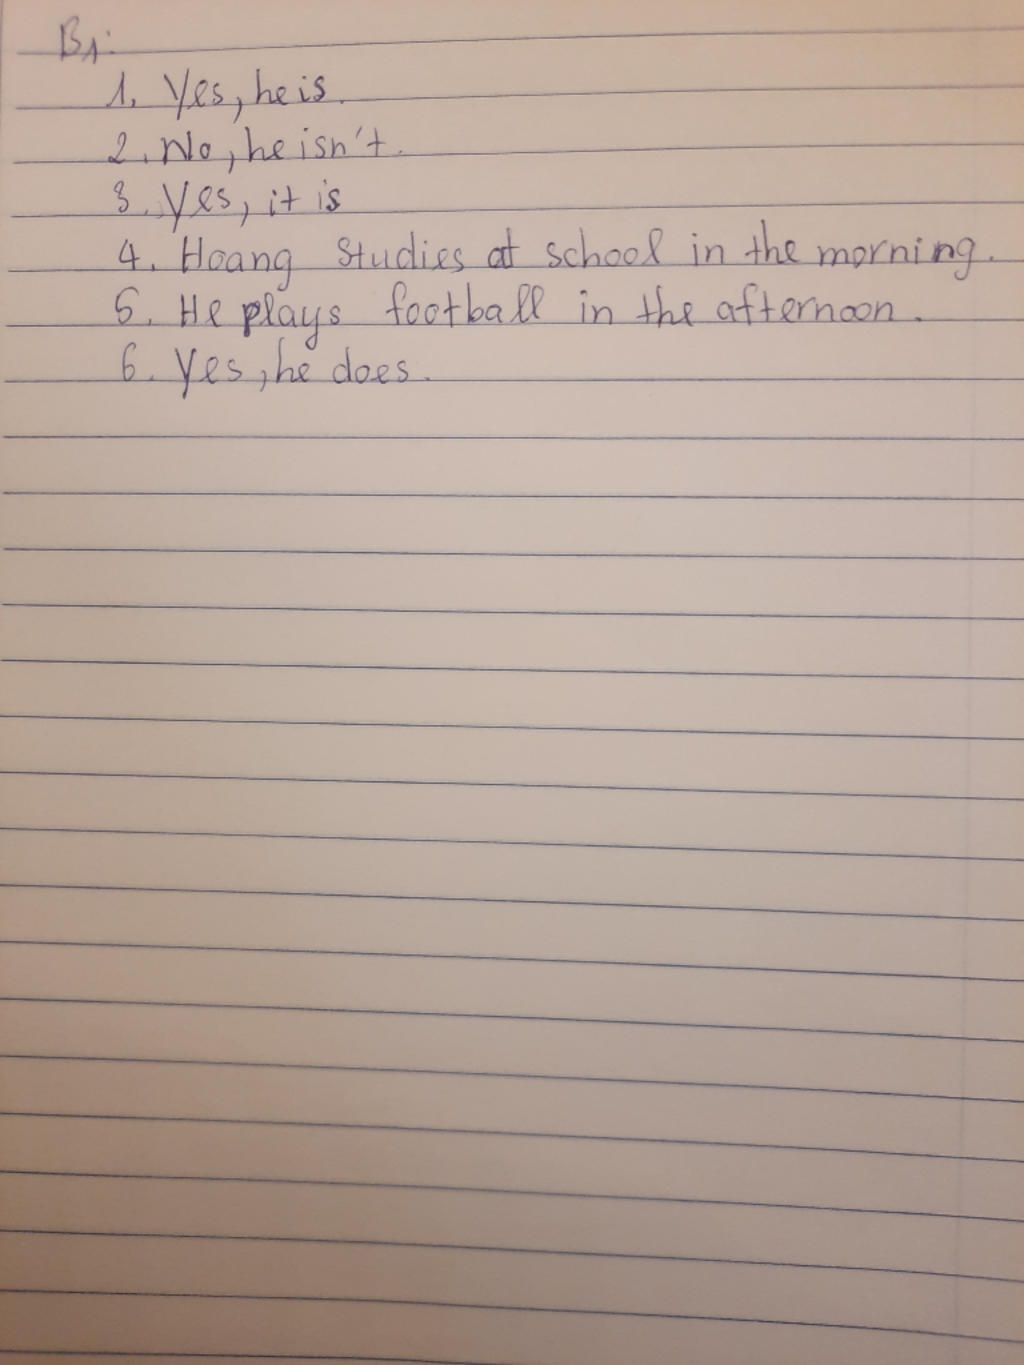 B1:
1. Yes, he is.
2. No, he isn't.
3. Yes, it is
4. Hoang studies at school in the morning.
5. He plays football in the afternoon.
6. Yes, he does.